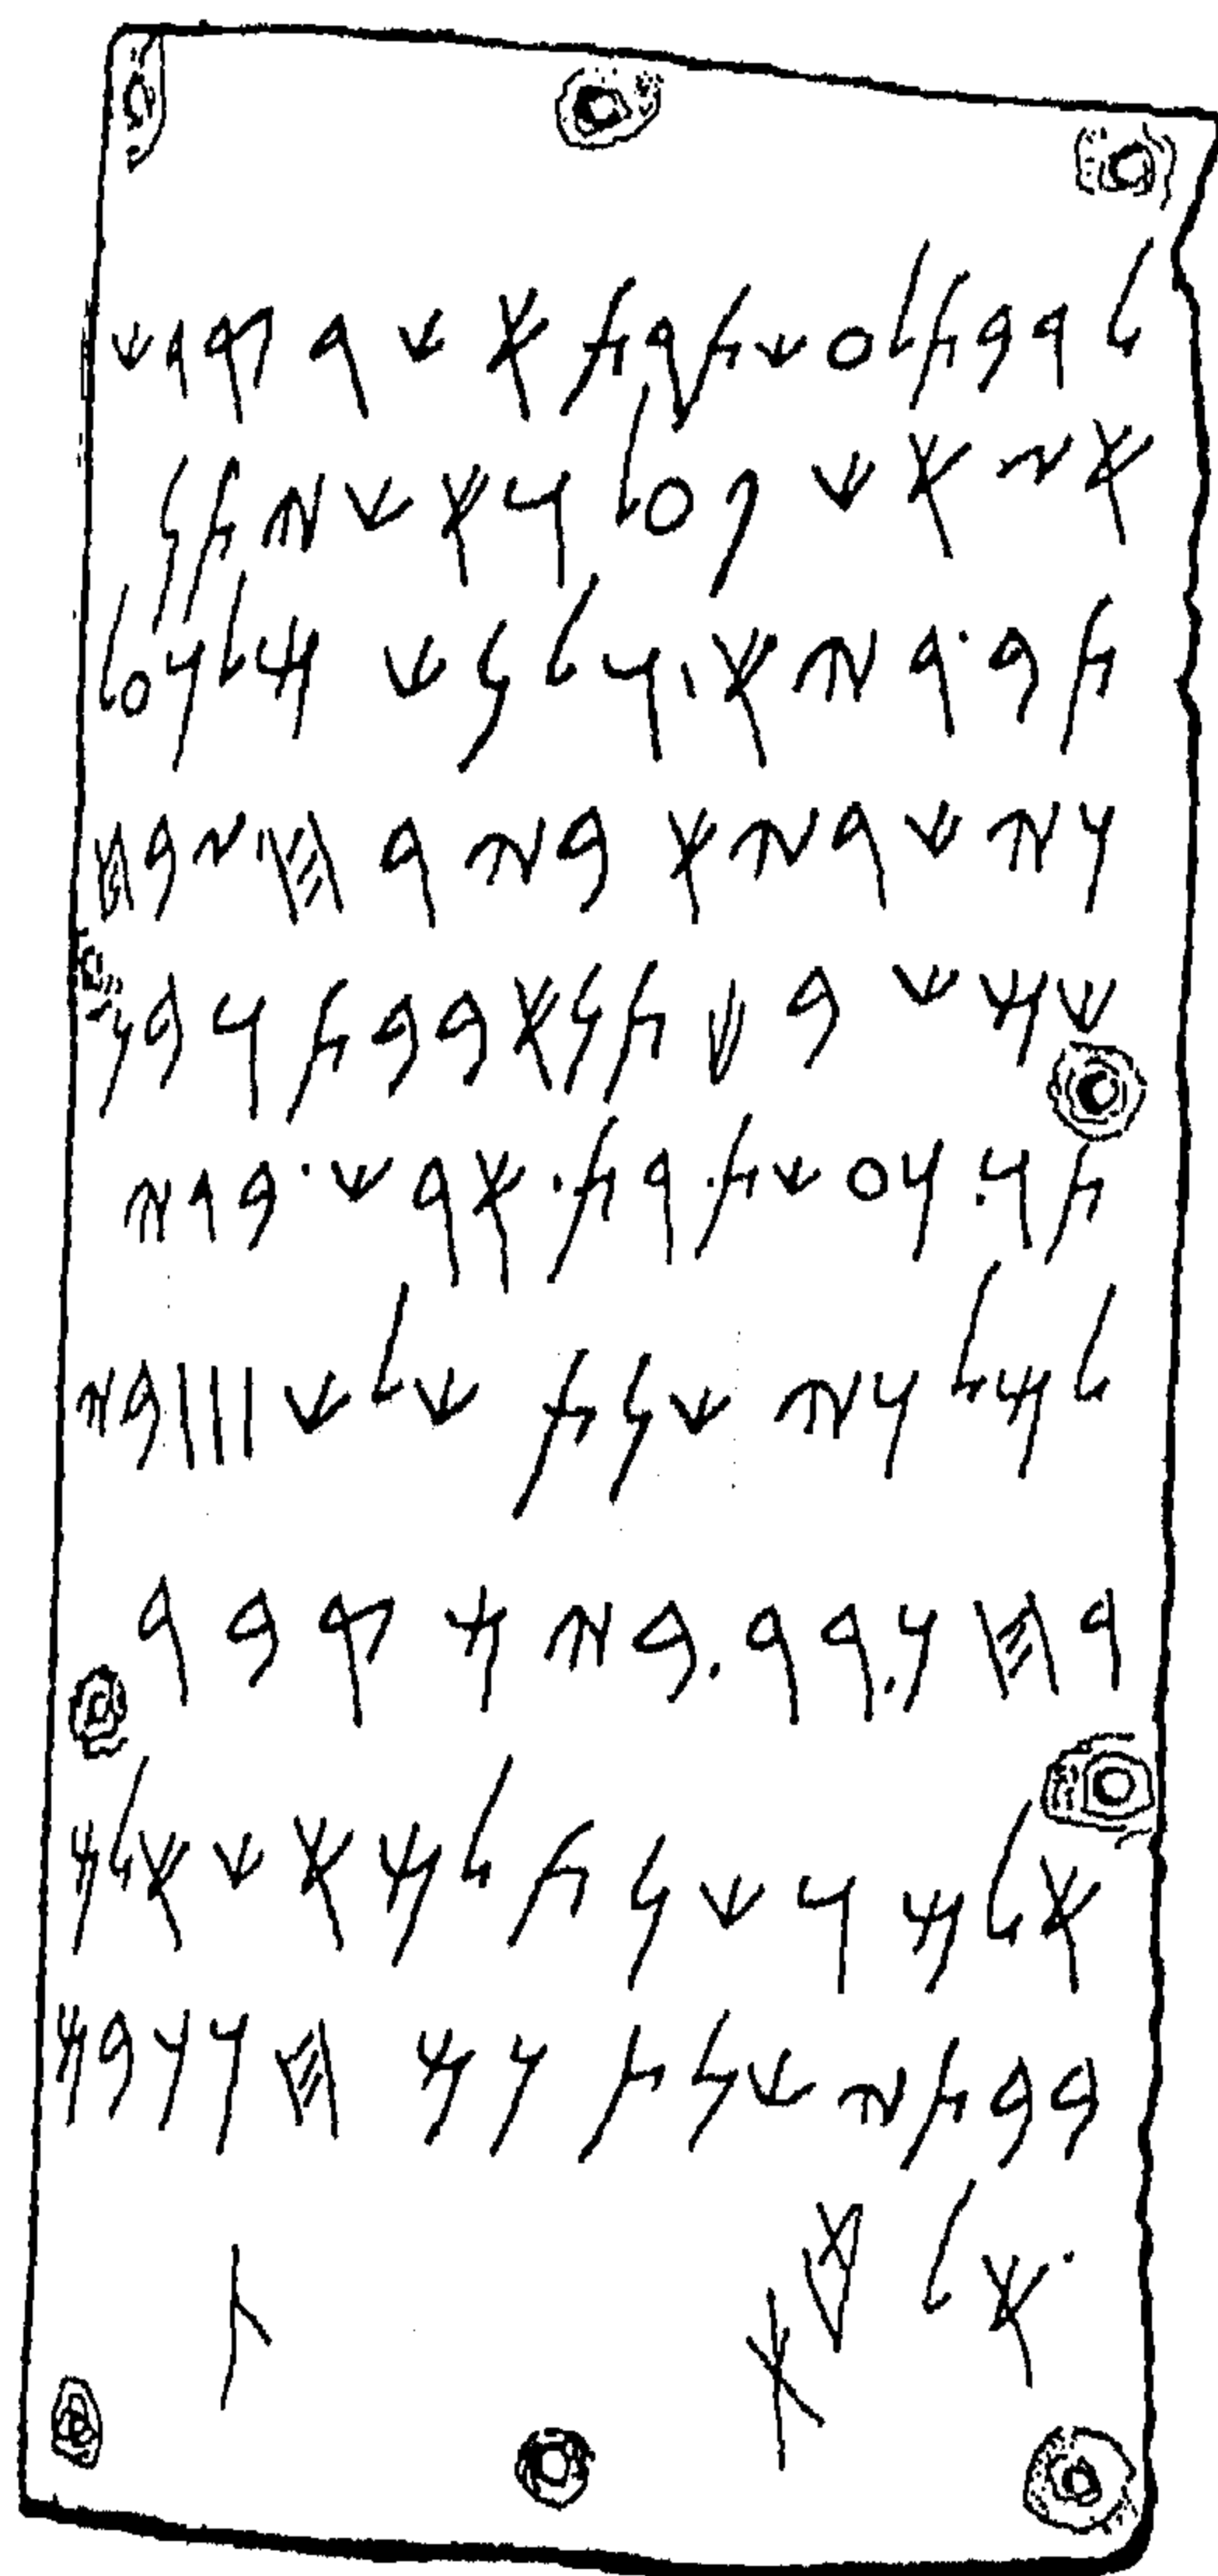 𐤋𐤓𐤁𐤕𐤋𐤏𐤔𐤕𐤓𐤕 𐤀𐤔 𐤓 𐤒𐤃𐤔
𐤀𐤆 𐤀𐤔 𐤐𐤏𐤋 𐤅𐤀𐤔 𐤉𐤕𐤍
𐤕𐤁𐤓𐤉𐤀 𐤅𐤋𐤍𐤔 𐤌𐤋𐤊𐤏𐤋
𐤊𐤉𐤔𐤓𐤉𐤀 𐤁𐤉𐤓𐤇 𐤆𐤁𐤇
𐤔𐤌𐤔 𐤁𐤌𐤕𐤍𐤀𐤁𐤁𐤕 𐤅𐤁𐤍
𐤕𐤅 𐤊𐤏𐤔𐤕𐤓𐤕 𐤀𐤓𐤔 𐤁𐤃𐤉
𐤋𐤌𐤋𐤊𐤉 𐤔𐤍𐤕 𐤔𐤋𐤔 𐤖𐤖𐤖 𐤁𐤉
𐤓𐤇 𐤊𐤓𐤓 𐤁𐤉𐤌 𐤒𐤁𐤓
𐤀𐤋𐤌 𐤅𐤔𐤍𐤕 𐤋𐤌𐤀𐤔 𐤀𐤋𐤌
𐤁𐤁𐤕𐤉 𐤔𐤍𐤕 𐤊𐤌 𐤄𐤊𐤊𐤁𐤌
𐤀𐤋